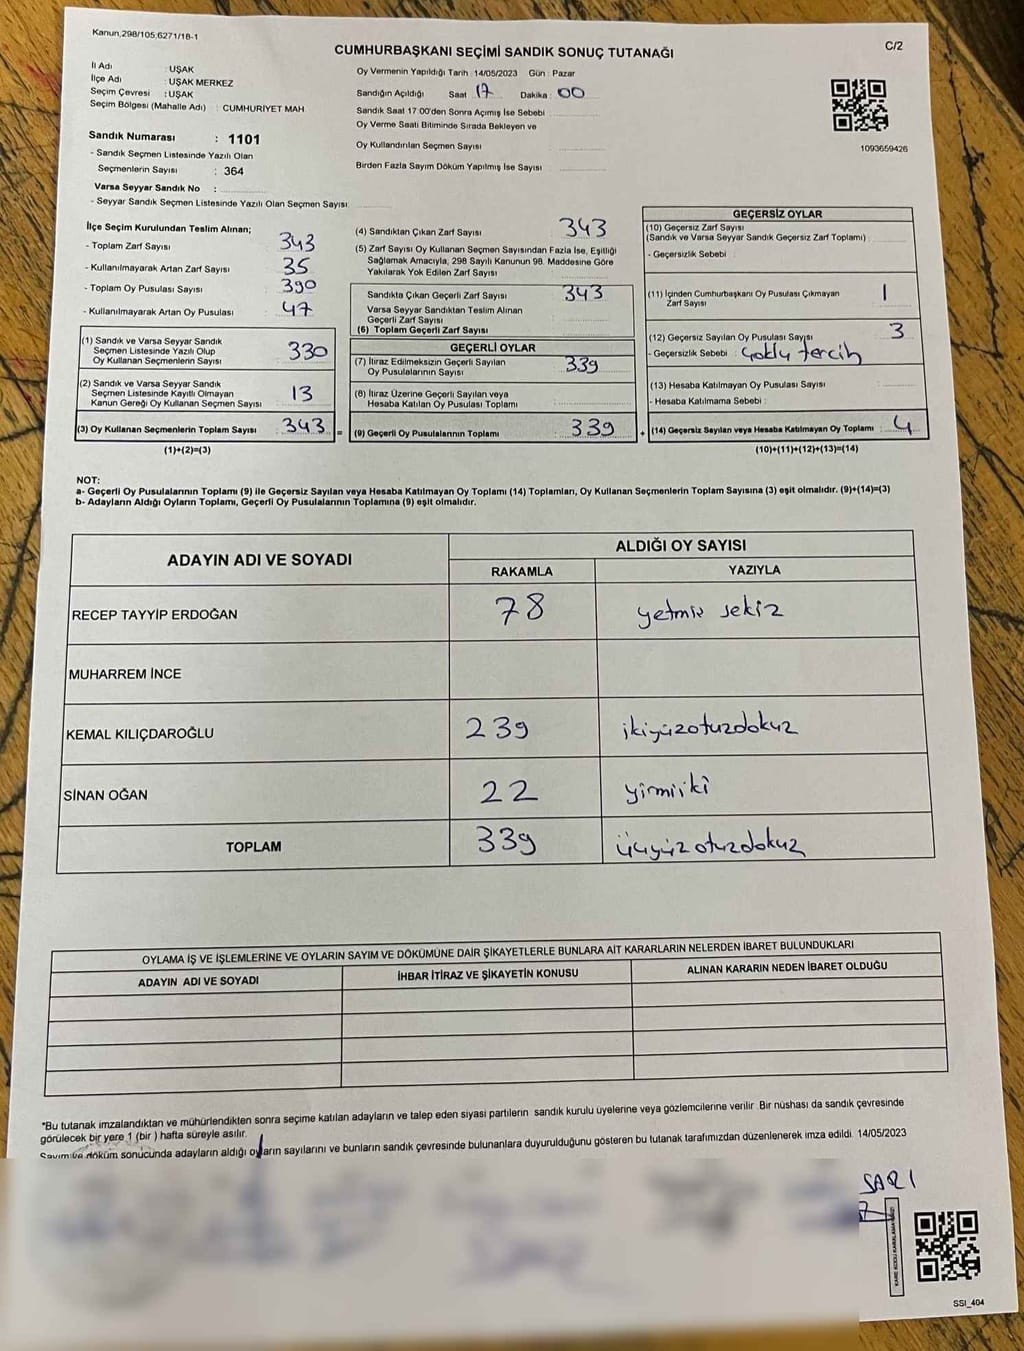 Kanun,298/105,6271/18-1
C/2
CUMHURBAŞKANI SEÇİMİ SANDIK SONUÇ TUTANAĞI
İl Adı : UŞAK
İlçe Adı : UŞAK MERKEZ
Seçim Çevresi : UŞAK
Seçim Bölgesi (Mahalle Adı) : CUMHURİYET MAH.
Sandık Numarası : 1101
- Sandık Seçmen Listesinde Yazılı Olan
Seçmenlerin Sayısı : 364
Varsa Seyyar Sandık No :
- Seyyar Sandık Seçmen Listesinde Yazılı Olan Seçmen Sayısı:
Oy Vermenin Yapıldığı Tarih : 14/05/2023 Gün : Pazar
Sandığın Açıldığı Saat : 17 Dakika : 00
Sandık Saat 17:00'den Sonra Açımış İse Sebebi :
Oy Verme Saati Bitiminde Sırada Bekleyen ve
Oy Kullandırılan Seçmen Sayısı :
Birden Fazla Sayım Döküm Yapılmış İse Sayısı :
1093659426
İlçe Seçim Kurulundan Teslim Alınan;
- Toplam Zarf Sayısı 343
- Kullanılmayarak Artan Zarf Sayısı 35
- Toplam Oy Pusulası Sayısı 390
- Kullanılmayarak Artan Oy Pusulası 47
(1) Sandık ve Varsa Seyyar Sandık
Seçmen Listesinde Yazılı Olup
Oy Kullanan Seçmenlerin Sayısı 330
(2) Sandık ve Varsa Seyyar Sandık
Seçmen Listesinde Kayıtlı Olmayan
Kanun Gereği Oy Kullanan Seçmen Sayısı 13
(3) Oy Kullanan Seçmenlerin Toplam Sayısı 343 =
(1)+(2)=(3)
(4) Sandıktan Çıkan Zarf Sayısı 343
(5) Zarf Sayısı Oy Kullanan Seçmen Sayısından Fazla İse, Eşitliği
Sağlamak Amacıyla, 298 Sayılı Kanunun 98. Maddesine Göre
Yakılarak Yok Edilen Zarf Sayısı
Sandıkta Çıkan Geçerli Zarf Sayısı 343
Varsa Seyyar Sandıktan Teslim Alınan
Geçerli Zarf Sayısı
(6) Toplam Geçerli Zarf Sayısı
GEÇERLİ OYLAR
(7) İtiraz Edilmeksizin Geçerli Sayılan
Oy Pusulalarının Sayısı 339
(8) İtiraz Üzerine Geçerli Sayılan veya
Hesaba Katılan Oy Pusulası Toplamı
(9) Geçerli Oy Pusulalarının Toplamı 339 +
GEÇERSİZ OYLAR
(10) Geçersiz Zarf Sayısı
(Sandık ve Varsa Seyyar Sandık Geçersiz Zarf Toplamı) :
- Geçersizlik Sebebi :
(11) İçinden Cumhurbaşkanı Oy Pusulası Çıkmayan
Zarf Sayısı 1
(12) Geçersiz Sayılan Oy Pusulası Sayısı 3
- Geçersizlik Sebebi : Çoklu tercih
(13) Hesaba Katılmayan Oy Pusulası Sayısı
- Hesaba Katılmama Sebebi :
(14) Geçersiz Sayılan veya Hesaba Katılmayan Oy Toplamı : 4
(10)+(11)+(12)+(13)=(14)
NOT:
a- Geçerli Oy Pusulalarının Toplamı (9) ile Geçersiz Sayılan veya Hesaba Katılmayan Oy Toplamı (14) Toplamları, Oy Kullanan Seçmenlerin Toplam Sayısına (3) eşit olmalıdır. (9)+(14)=(3)
b- Adayların Aldığı Oyların Toplamı, Geçerli Oy Pusulalarının Toplamına (9) eşit olmalıdır.
ADAYIN ADI VE SOYADI
ALDIĞI OY SAYISI
RAKAMLA YAZIYLA
RECEP TAYYİP ERDOĞAN 78 yetmiş sekiz
MUHARREM İNCE
KEMAL KILIÇDAROĞLU 239 ikiyüzotuzdokuz
SİNAN OĞAN 22 yirmiiki
TOPLAM 339 üçyüzotuzdokuz
OYLAMA İŞ VE İŞLEMLERİNE VE OYLARIN SAYIM VE DÖKÜMÜNE DAİR ŞİKAYETLERLE BUNLARA AİT KARARLARIN NELERDEN İBARET BULUNDUKLARI
ADAYIN ADI VE SOYADI İHBAR İTİRAZ VE ŞİKAYETİN KONUSU ALINAN KARARIN NEDEN İBARET OLDUĞU
*Bu tutanak imzalandıktan ve mühürlendikten sonra seçime katılan adayların ve talep eden siyasi partilerin sandık kurulu üyelerine veya gözlemcilerine verilir. Bir nüshası da sandık çevresinde
görülecek bir yere 1 (bir ) hafta süreyle asılır.
Sayım ve döküm sonucunda adayların aldığı oyların sayılarını ve bunların sandık çevresinde bulunanlara duyurulduğunu gösteren bu tutanak tarafımızdan düzenlenerek imza edildi. 14/05/2023
SARI
SSI_404